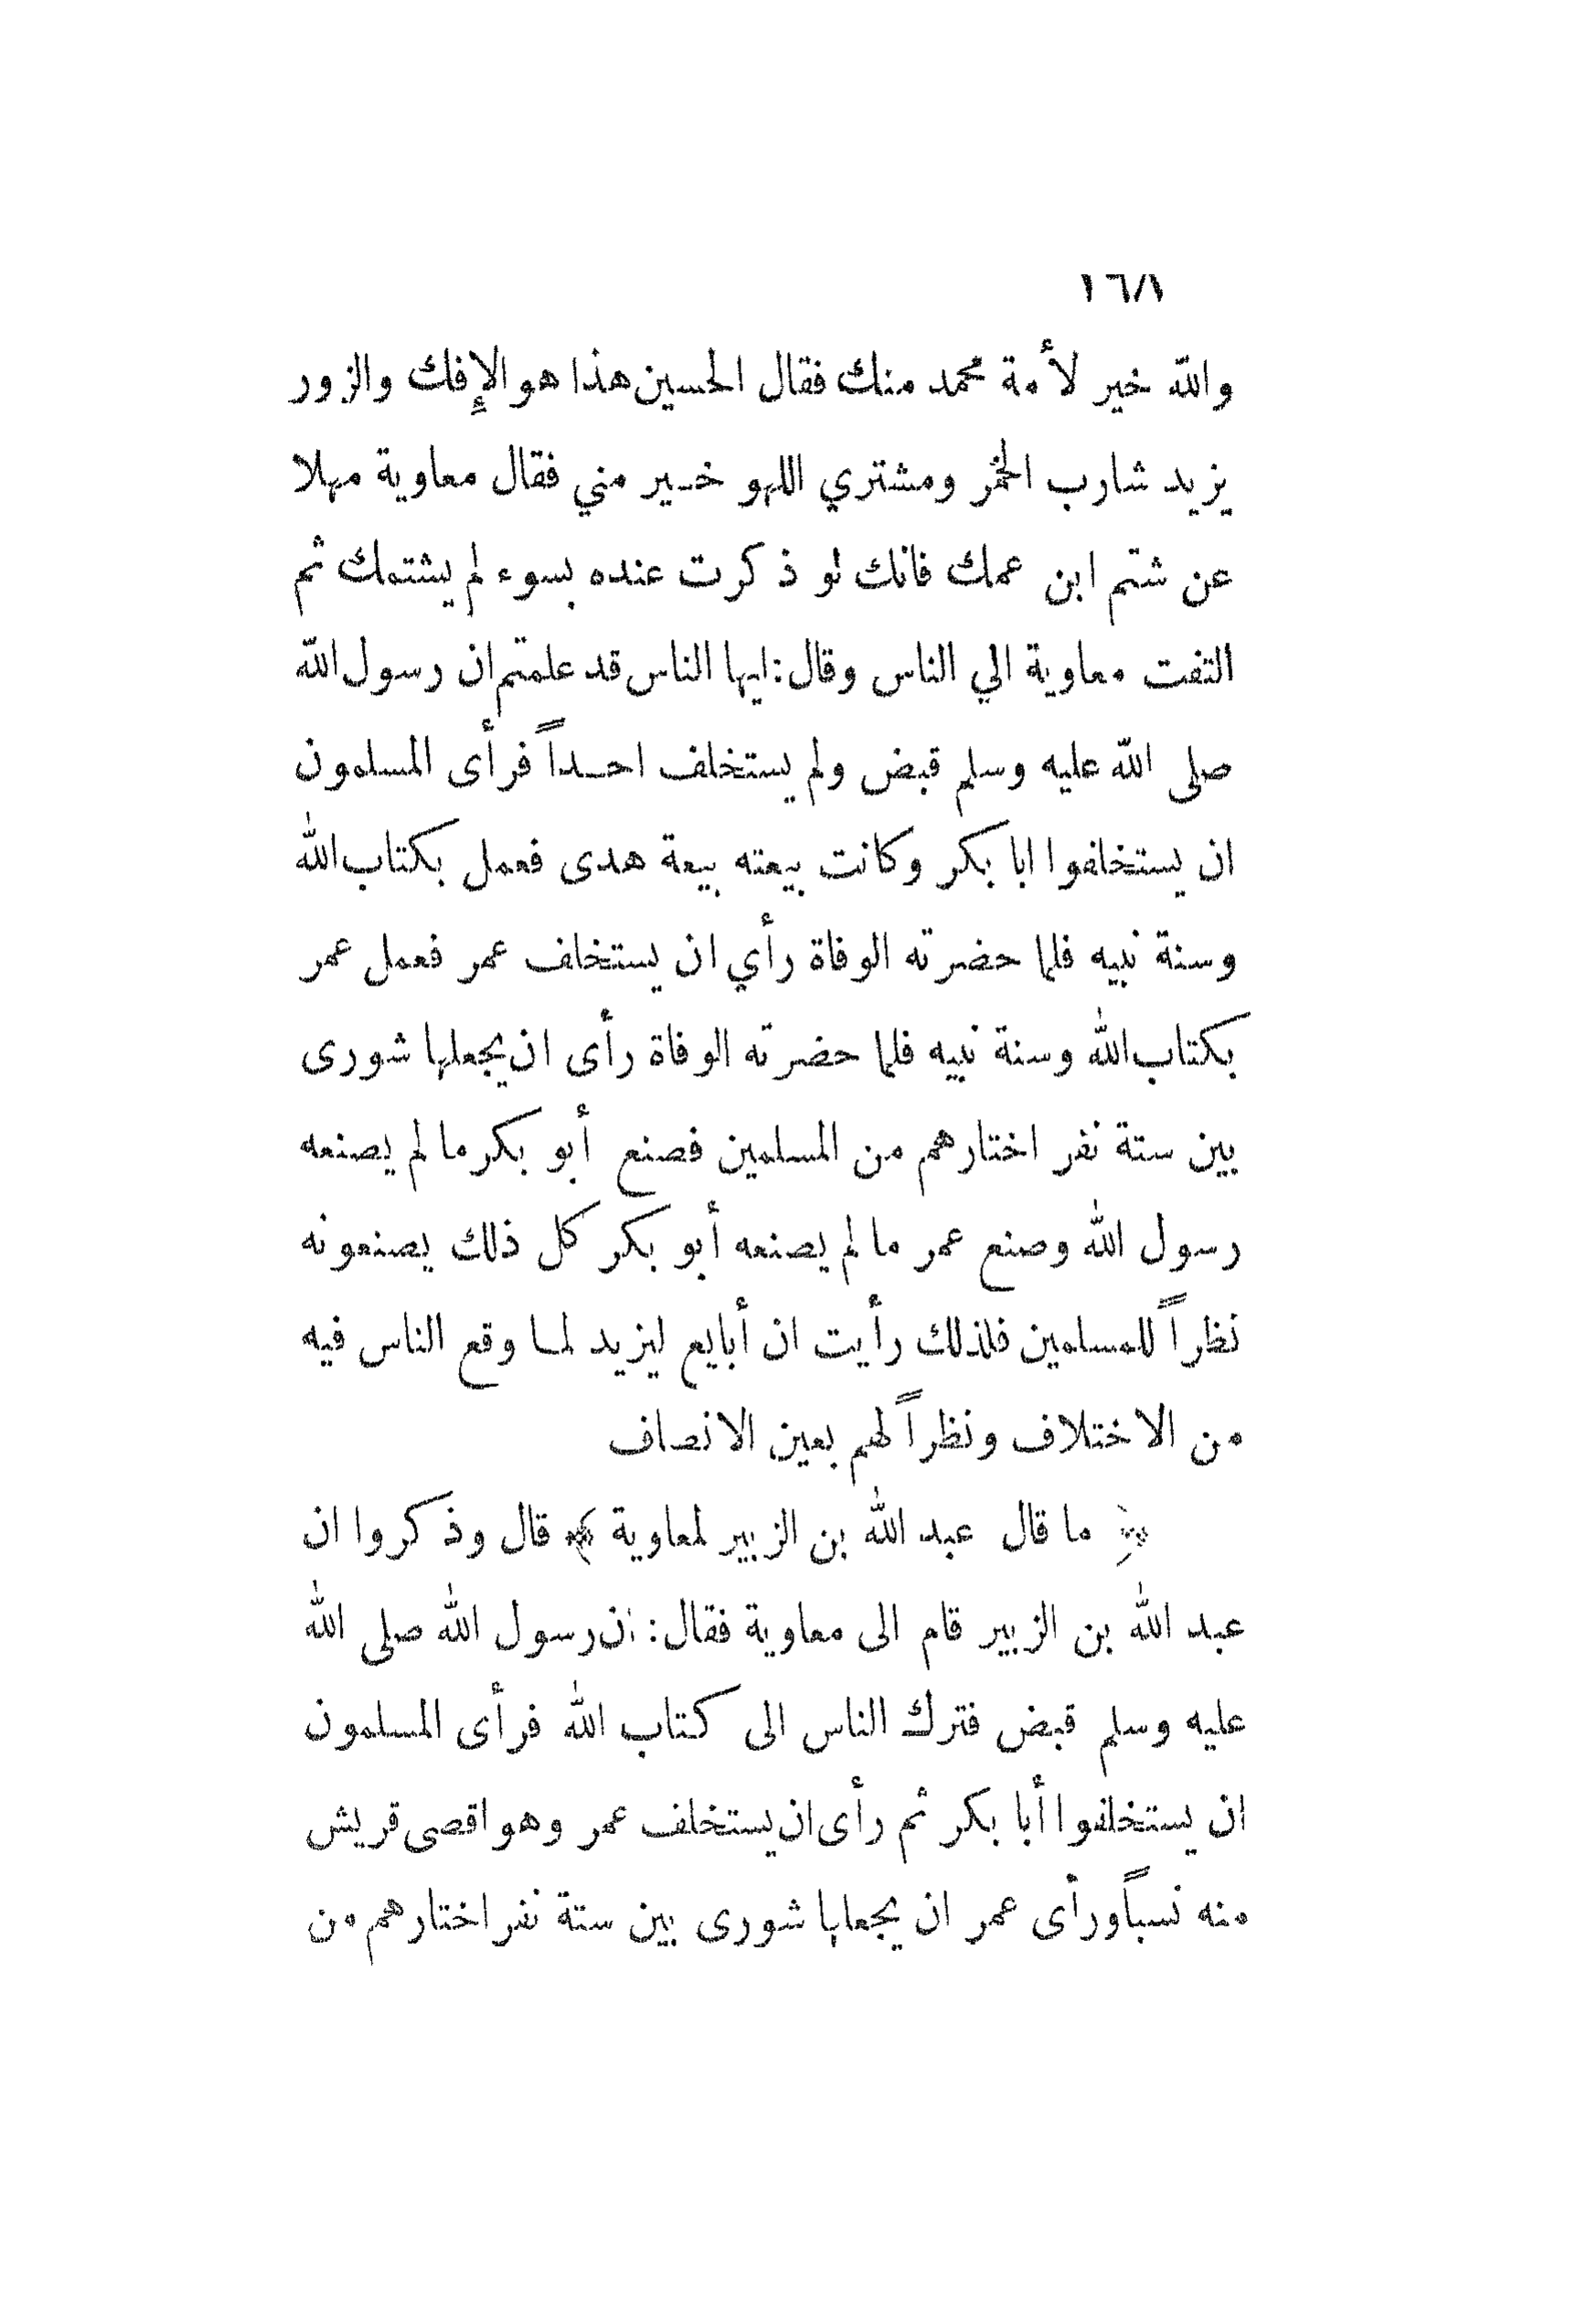 والله خير لأمة محمد منك فقال الحسين هذا هو الإفك والزور
يزيد شارب الخمر ومشتري اللهو خير مني فقال معاوية مهلا
عن شتم ابن عمك فانك لو ذكرت عنده بسوء لم يشتمك ثم
التفت معاوية الي الناس وقال: ايها الناس قد علمتم ان رسول الله
صلى الله عليه وسلم قبض ولم يستخلف احداً فرأى المسلمون
ان يستخلفوا ابا بكر وكانت بيعته بيعة هدى فعمل بكتاب الله
وسنة نبيه فلما حضرته الوفاة رأي ان يستخلف عمر فعمل عمر
بكتاب الله وسنة نبيه فلما حضرته الوفاة رأى ان يجعلها شورى
بين ستة نفر اختارهم من المسلمين فصنع أبو بكر ما لم يصنعه
رسول الله وصنع عمر ما لم يصنعه أبو بكر كل ذلك يصنعونه
نظراً للمسلمين فلذلك رأيت ان أبايع ليزيد لما وقع الناس فيه
من الاختلاف ونظراً لهم بعين الانصاف
﴿ ما قال عبد الله بن الزبير لمعاوية ﴾ قال وذكروا ان
عبد الله بن الزبير قام الى معاوية فقال: ان رسول الله صلى الله
عليه وسلم قبض فترك الناس الى كتاب الله فرأى المسلمون
ان يستخلفوا أبا بكر ثم رأى ان يستخلف عمر وهو اقصى قريش
منه نسباً ورأى عمر ان يجعلها شورى بين ستة نفر اختارهم من